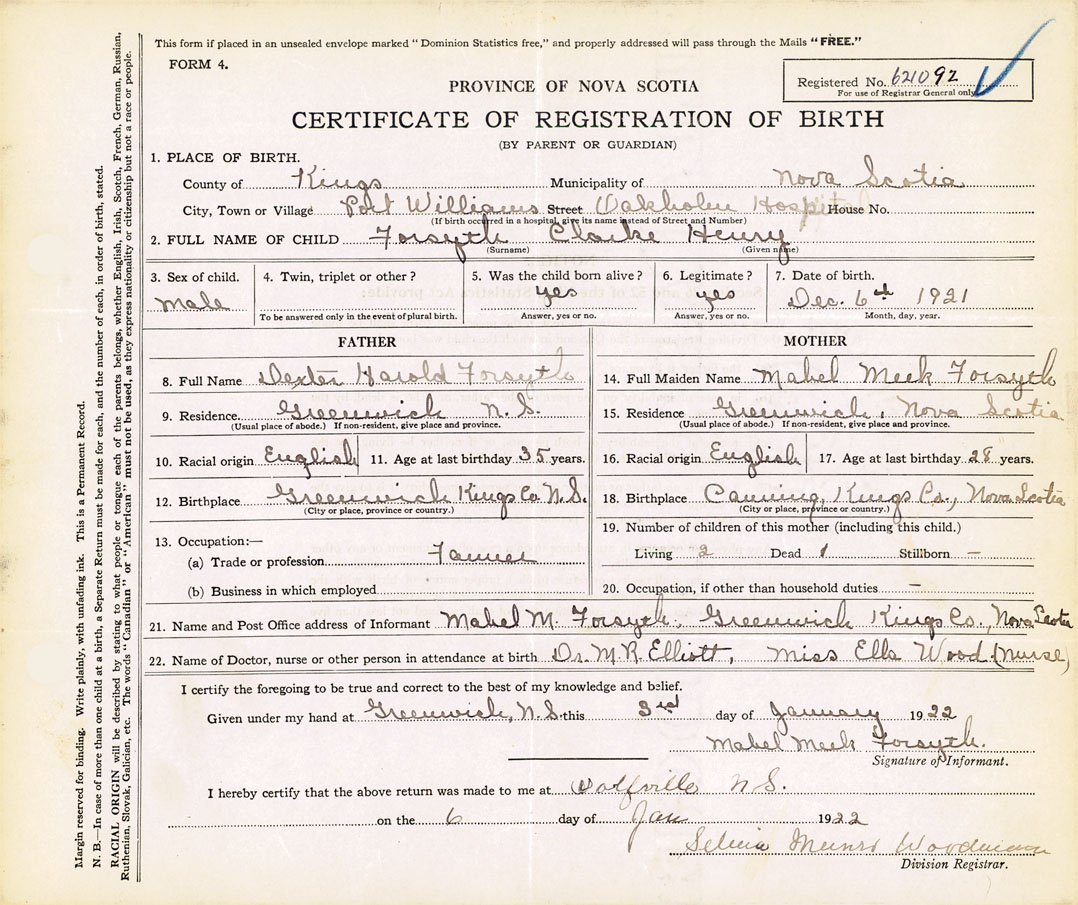 This form if placed in an unsealed envelope marked "Dominion Statistics free," and properly addressed will pass through the Mails "FREE."
FORM 4.
Registered No. 621092
For use of Registrar General only
PROVINCE OF NOVA SCOTIA
CERTIFICATE OF REGISTRATION OF BIRTH
(BY PARENT OR GUARDIAN)
1. PLACE OF BIRTH.
County of Kings Municipality of Nova Scotia
City, Town or Village Port Williams Street Oakholm Hospital House No.
(If birth occurred in a hospital, give its name instead of Street and Number)
2. FULL NAME OF CHILD Forsyth Clarke Henry
(Surname) (Given name)
3. Sex of child. 4. Twin, triplet or other? 5. Was the child born alive? 6. Legitimate? 7. Date of birth.
male yes yes Dec. 6th 1921
To be answered only in the event of plural birth. Answer, yes or no. Answer, yes or no. Month, day, year.
FATHER MOTHER
8. Full Name Dexter Harold Forsyth 14. Full Maiden Name Mabel Meek Forsyth
9. Residence. Greenwich N.S. 15. Residence Greenwich, Nova Scotia
(Usual place of abode.) If non-resident, give place and province. (Usual place of abode.) If non-resident, give place and province.
10. Racial origin English 11. Age at last birthday 35 years. 16. Racial origin English 17. Age at last birthday 28 years.
12. Birthplace Greenwich Kings Co. N.S. 18. Birthplace Canning, Kings Co., Nova Scotia
(City or place, province or country.) (City or place, province or country.)
13. Occupation:— 19. Number of children of this mother (including this child.)
(a) Trade or profession Farmer Living 2 Dead 1 Stillborn —
(b) Business in which employed 20. Occupation, if other than household duties. —
21. Name and Post Office address of Informant Mabel M. Forsyth, Greenwich Kings Co., Nova Scotia
22. Name of Doctor, nurse or other person in attendance at birth Dr. M. R. Elliott, Miss Ella Wood (nurse)
I certify the foregoing to be true and correct to the best of my knowledge and belief.
Given under my hand at Greenwich, N.S. this 3rd day of January 1922
Mabel Meek Forsyth.
Signature of Informant.
I hereby certify that the above return was made to me at Wolfville N S.
on the 6 day of Jan 1922
Munro Woodman
Division Registrar.
Margin reserved for binding. Write plainly, with unfading ink. This is a Permanent Record.
N. B.—In case of more than one child at a birth, a Separate Return must be made for each, and the number of each, in order of birth, stated.
RACIAL ORIGIN will be described by stating to what people or tongue each of the parents belongs, whether English, Irish, Scotch, French, German, Russian,
Ruthenian, Slovak, Galician, etc. The words "Canadian" or "American" must not be used, as they express nationality or citizenship but not a race or people.